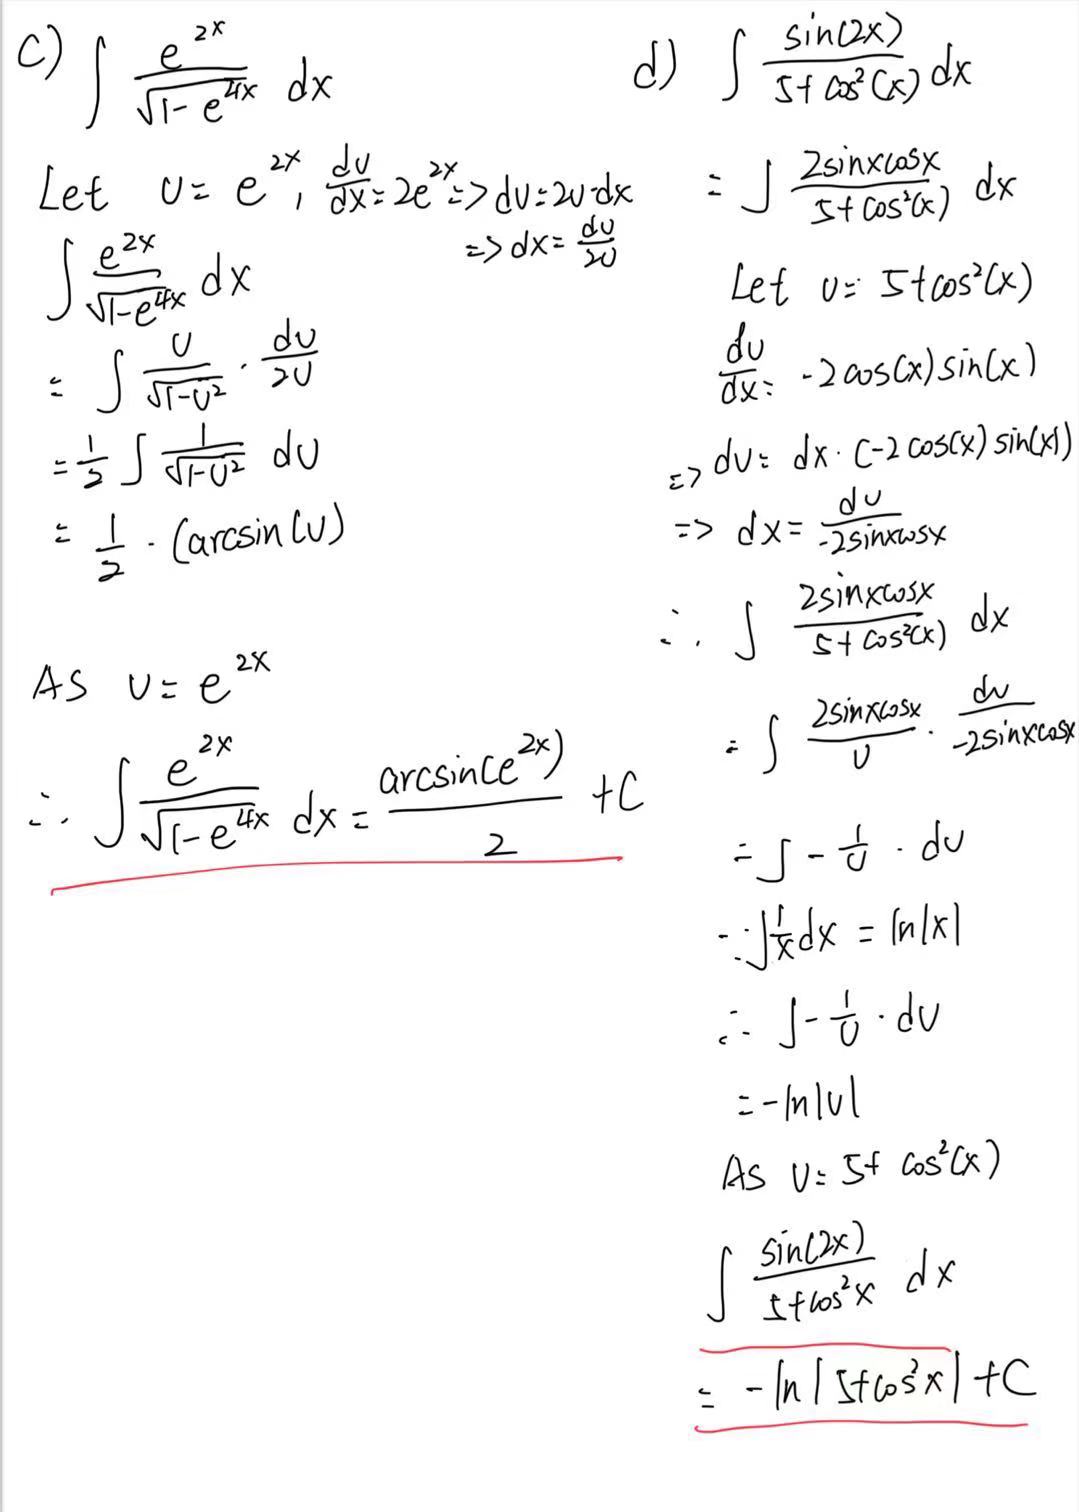 c) ∫ e^{2x} / √(1 - e^{4x}) dx
Let u = e^{2x}, du/dx = 2e^{2x} => du = 2u·dx
=> dx = du/2u
∫ e^{2x} / √(1 - e^{4x}) dx
= ∫ u / √(1 - u²) · du/2u
= 1/2 ∫ 1 / √(1 - u²) du
= 1/2 · (arcsin(u)
As u = e^{2x}
∴ ∫ e^{2x} / √(1 - e^{4x}) dx = arcsin(e^{2x}) / 2 + C
d) ∫ sin(2x) / 5 + cos²(x) dx
= ∫ 2sinxcosx / 5 + cos²(x) dx
Let u = 5 + cos²(x)
du/dx = -2cos(x)sin(x)
=> du = dx · (-2cos(x)sin(x))
=> dx = du / -2sinxcosx
∴ ∫ 2sinxcosx / 5 + cos²(x) dx
= ∫ 2sinxcosx / u · du / -2sinxcosx
= ∫ - 1/u · du
∵ ∫ 1/x dx = ln|x|
∴ ∫ - 1/u · du
= -ln|u|
As u = 5 + cos²(x)
∫ sin(2x) / 5 + cos²x dx
= -ln|5 + cos²x| + C